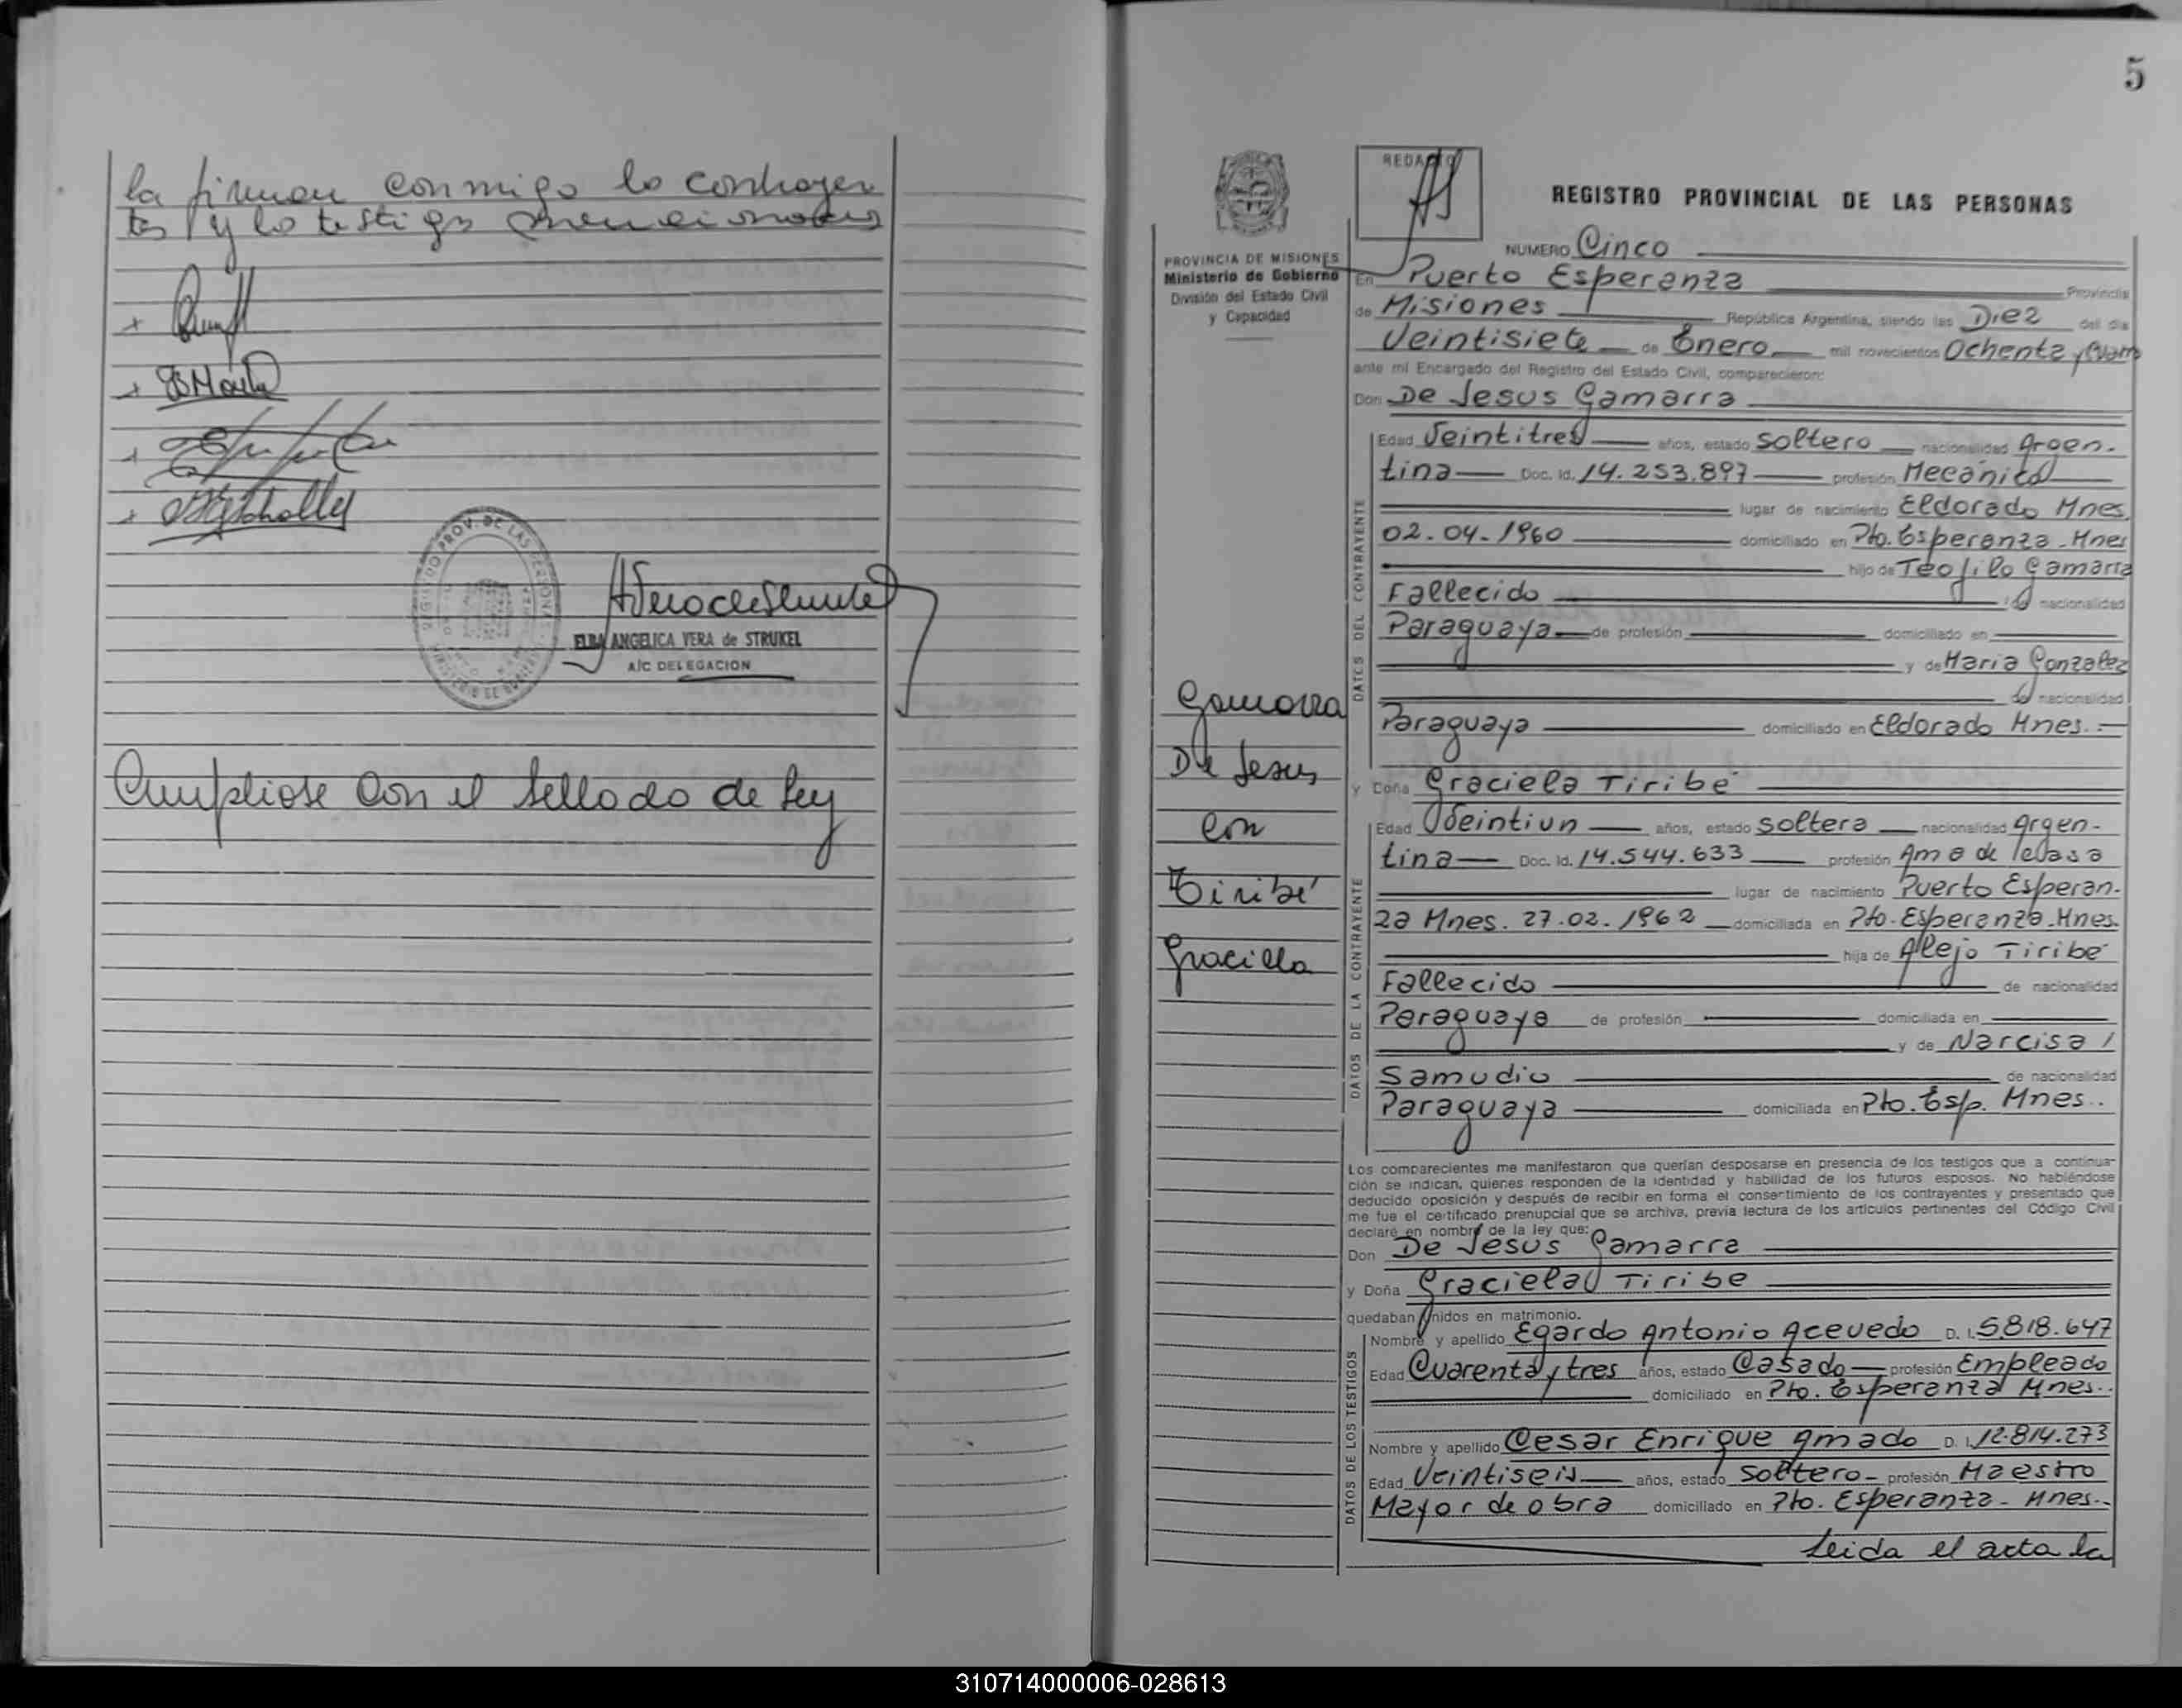 la firman conmigo lo contrayen
tes y lo testigo mencionados
ELBA ANGELICA VERA de STRUKEL
A/C DELEGACION
Cumpliose con el sellado de ley
5
REDACTO
REGISTRO PROVINCIAL DE LAS PERSONAS
NUMERO Cinco
PROVINCIA DE MISIONES
Ministerio de Gobierno
División del Estado Civil
y Capacidad
En Puerto Esperanza Provincia
de Misiones República Argentina, siendo las Diez del día
Veintisiete de Enero mil novecientos Ochenta y
ante mí Encargado del Registro del Estado Civil, comparecieron:
Don De Jesus Gamarra
Edad Veintitres años, estado Soltero nacionalidad Argen-
tina Doc. Id. 14.253.897 profesión Mecánico
lugar de nacimiento Eldorado Mnes.
02-04-1960 domiciliado en Pto. Esperanza-Mnes
hijo de Teofilo Gamarra
Fallecido de nacionalidad
Paraguaya de profesión domiciliado en
y de Maria Gonzalez
de nacionalidad
Paraguaya domiciliado en Eldorado Mnes.
DATOS DEL CONTRAYENTE
Gamarra
De Jesus
con
Tiribé
Graciela
y Doña Graciela Tiribé
Edad Veintiun años, estado Soltera nacionalidad Argen-
tina Doc. Id. 14.544.633 profesión Ama de
lugar de nacimiento Puerto Esperan-
za Mnes. 27.02.1962 domiciliada en Pto-Esperanza-Mnes.
hija de Alejo Tiribé
Fallecido de nacionalidad
Paraguaya de profesión domiciliada en
y de Narcisa /
Samudio de nacionalidad
Paraguaya domiciliada en Pto. Esp. Mnes..
DATOS DE LA CONTRAYENTE
Los comparecientes me manifestaron que querían desposarse en presencia de los testigos que a continua-
ción se indican, quienes responden de la identidad y habilidad de los futuros esposos. No habiéndose
deducido oposición y después de recibir en forma el consertimiento de los contrayentes y presentado que
me fue el certificado prenupcial que se archiva, previa lectura de los artículos pertinentes del Código Civil
declaré en nombre de la ley que:
Don De Jesus Gamarra
y Doña Graciela Tiribe
quedaban unidos en matrimonio.
Nombre y apellido Egardo Antonio Acevedo D. I. 5.818.647
Edad Cuarenta y tres años, estado Casado profesión Empleado
domiciliado en Pto. Esperanza Mnes..
Nombre y apellido Cesar Enrique Amado D. I. 12.814.273
Edad Veintiseis años, estado Soltero- profesión Maestro
Mayor de obra domiciliado en Pto. Esperanza - Mnes..
DATOS DE LOS TESTIGOS
Leida el acta la
310714000006-028613